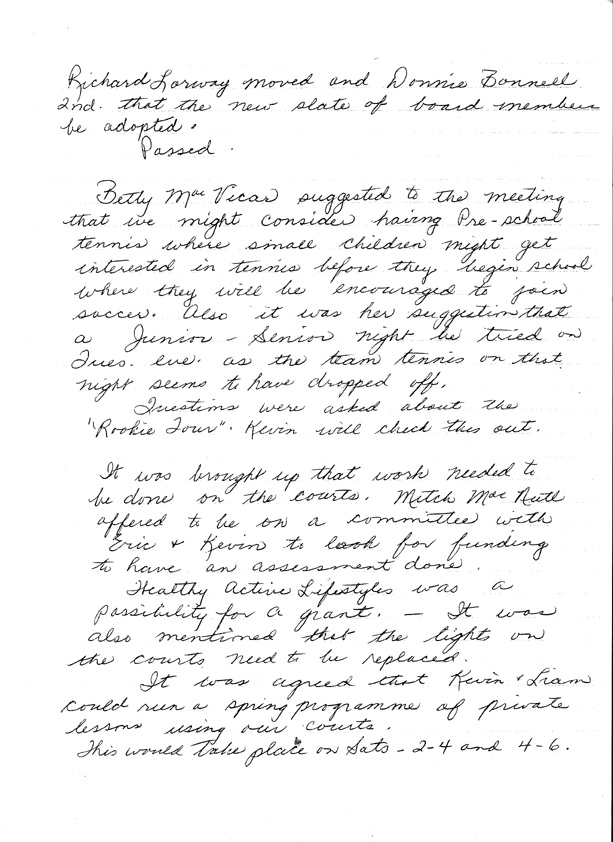 Richard Lorway moved and Donnie Bonnell
2nd. that the new slate of board members
be adopted.
Passed.
Betty MacVicar suggested to the meeting
that we might consider having Pre-school
tennis where small children might get
interested in tennis before they begin school
where they will be encouraged to join
soccer. Also it was her suggestion that
a Junior - Senior night be tried on
Tues. eve. as the team tennis on that
night seems to have dropped off.
Questions were asked about the
"Rookie Tour". Kevin will check this out.
It was brought up that work needed to
be done on the courts. Mitch Mac
offered to be on a committee with
Eric + Kevin to look for funding
to have an assessment done.
Healthy Active Lifestyles was a
possibility for a grant. — It was
also mentioned that the lights on
the courts need to be replaced.
It was agreed that Kevin + Liam
could run a spring programme of private
lessons using our courts.
This would take place on Sats - 2-4 and 4-6.